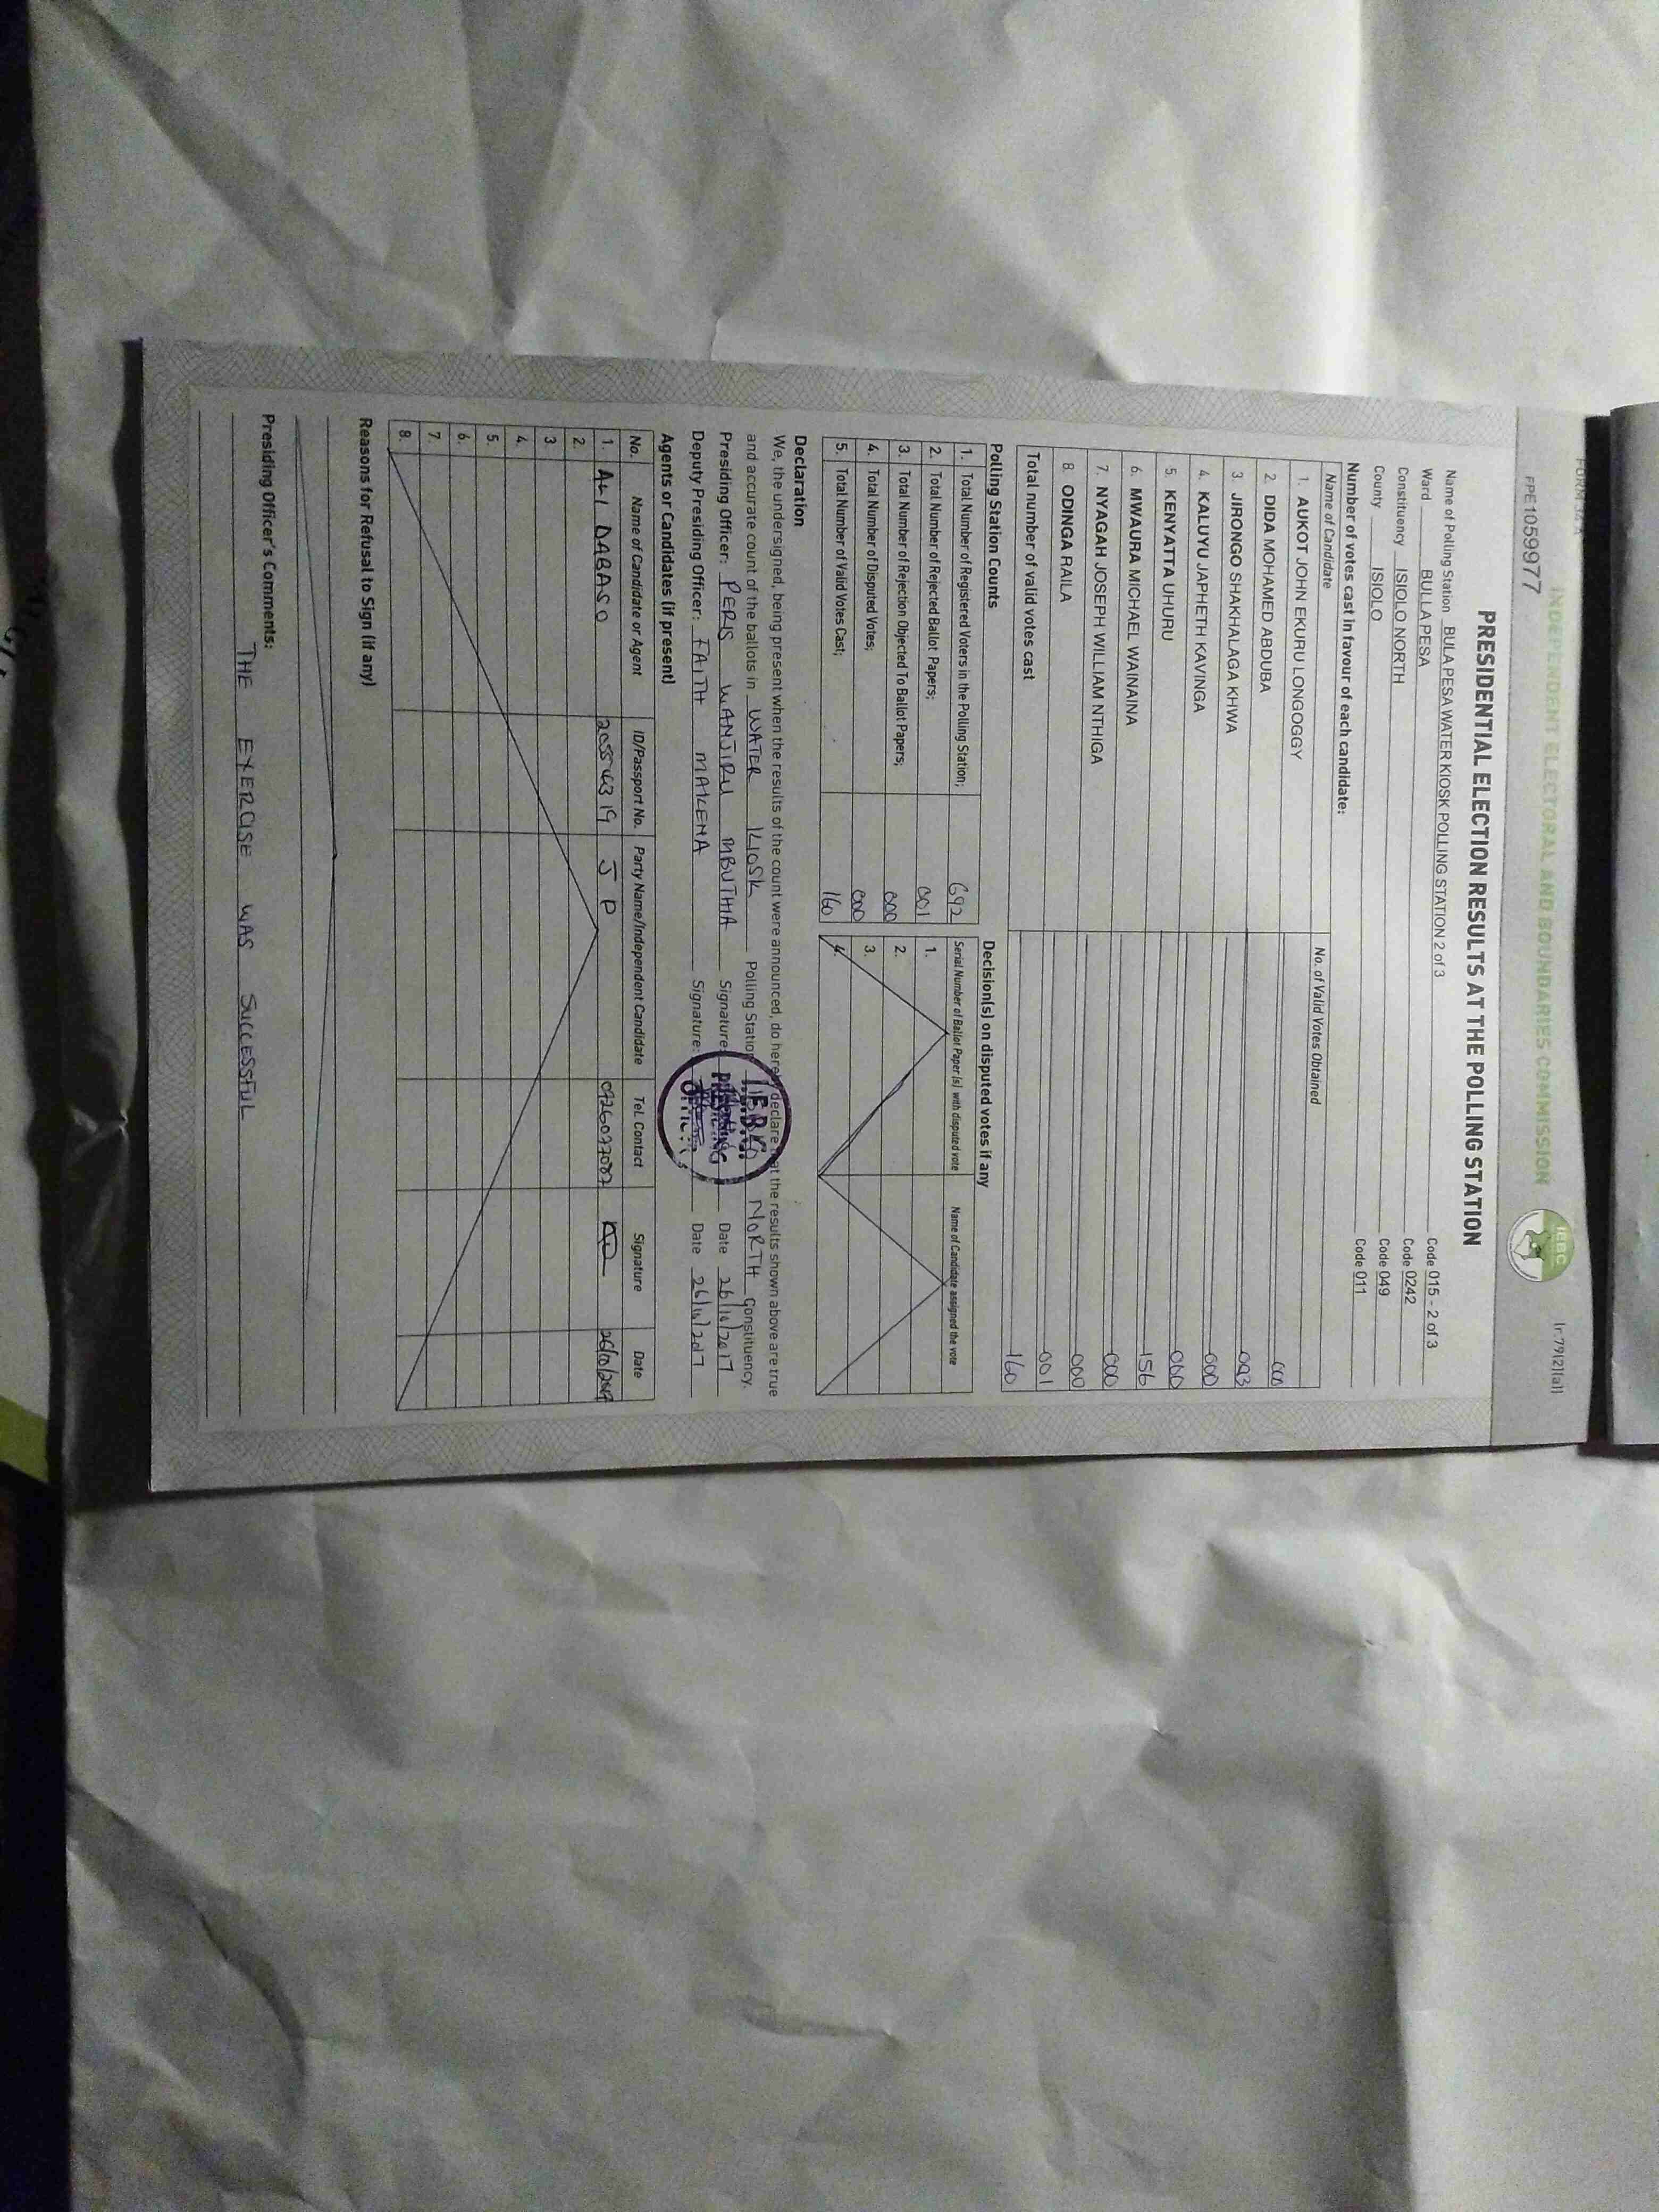 FORM 34 A
INDEPENDENT ELECTORAL AND BOUNDARIES COMMISSION
IEBC
(r.79(2)(a))
PPE1059977
PRESIDENTIAL ELECTION RESULTS AT THE POLLING STATION
Name of Polling Station BULA PESA WATER KIOSK POLLING STATION 2 of 3 Code 015 - 2 of 3
Ward BULLA PESA Code 0242
Constituency ISIOLO NORTH Code 049
County ISIOLO Code 011
Number of votes cast in favour of each candidate:
Name of Candidate No. of Valid Votes Obtained
1. AUKOT JOHN EKURU LONGOGGY 000
2. DIDA MOHAMED ABDUBA 003
3. JIRONGO SHAKHALAGA KHWA 000
4. KALUYU JAPHETH KAVINGA 000
5. KENYATTA UHURU 156
6. MWAURA MICHAEL WAINAINA 000
7. NYAGAH JOSEPH WILLIAM NTHIGA 000
8. ODINGA RAILA 001
Total number of valid votes cast 160
Polling Station Counts Decision(s) on disputed votes if any
1. Total Number of Registered Voters in the Polling Station; 692 Serial Number of Ballot Paper (s) with disputed vote Name of Candidate assigned the vote
2. Total Number of Rejected Ballot Papers; 001 1.
3. Total Number of Rejection Objected To Ballot Papers; 000 2.
4. Total Number of Disputed Votes; 000 3.
5. Total Number of Valid Votes Cast; 160 4.
Declaration
We, the undersigned, being present when the results of the count were announced, do hereby declare that the results shown above are true
and accurate count of the ballots in WATER KIOSK Polling Station NORTH Constituency.
Presiding Officer: PERIS WANJIRU MBUTHIA Signature: Date 26/10/2017
Deputy Presiding Officer: FAITH MAKENA Signature: Date 26/10/2017
I.E.B.C.
PRESIDING
OFFICER
Agents or Candidates (if present)
No. Name of Candidate or Agent ID/Passport No. Party Name/Independent Candidate Tel. Contact Signature Date
1. ALI DABASO J P 26/10/2017
2.
3.
4.
5.
6.
7.
8.
Reasons for Refusal to Sign (if any)
Presiding Officer's Comments:
THE EXERCISE WAS SUCCESSFUL